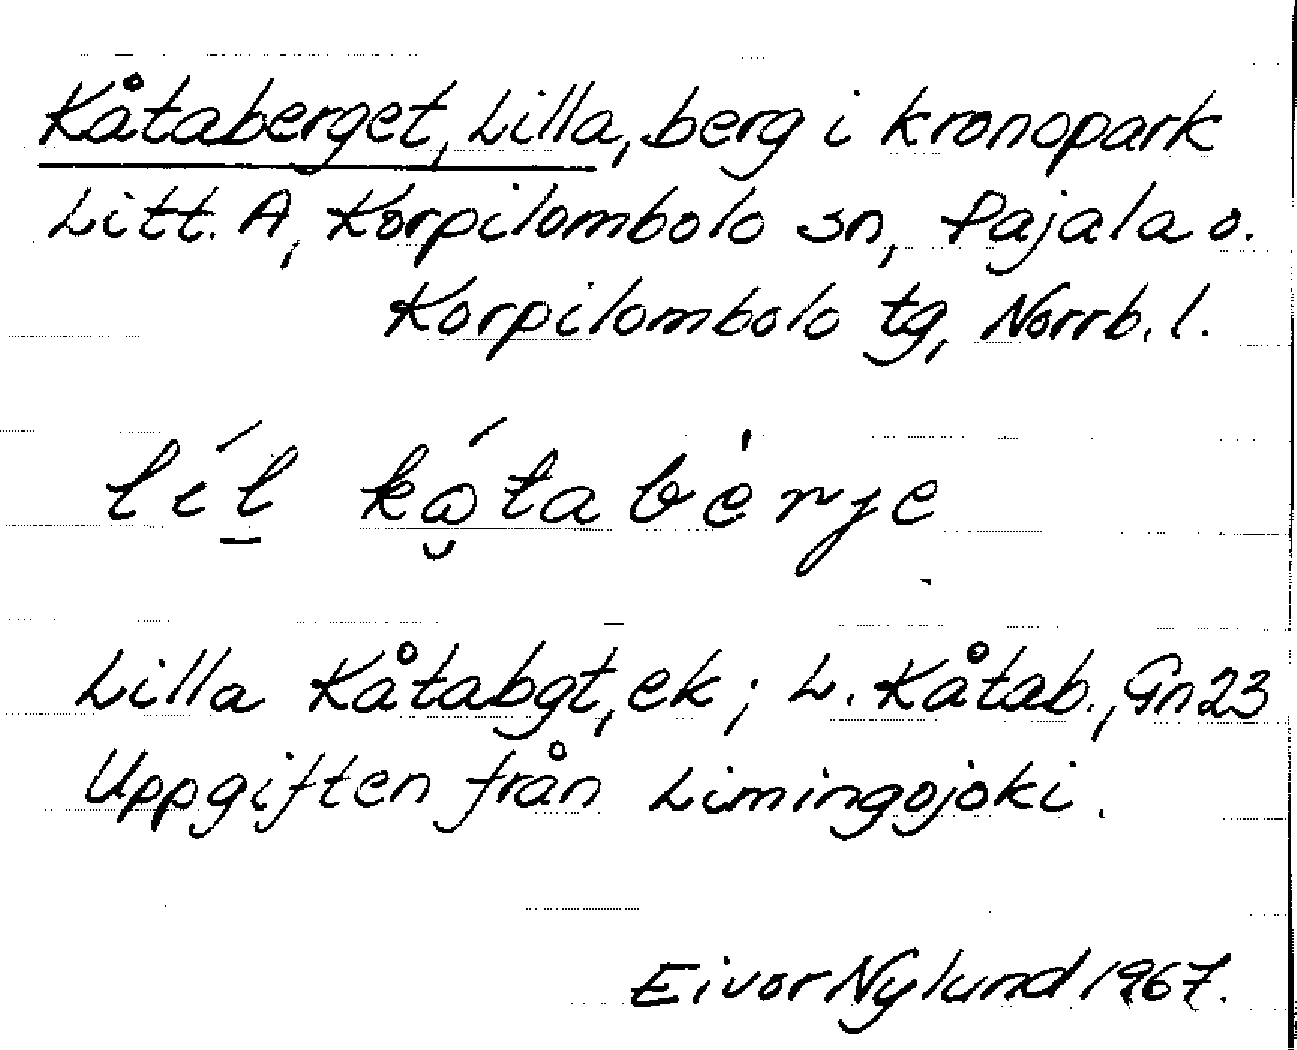 Kåtaberget, Lilla, berg i kronopark
Litt. A, Korpilombolo sn, Pajala o.
Korpilombolo tg, Norrb. l.
líl̲ kǻ̮tabėrje
Lilla Kåtabgt, ek; L. Kåtab., Gn 23
Uppgiften från Limingojoki.
Eivor Nylund 1967.